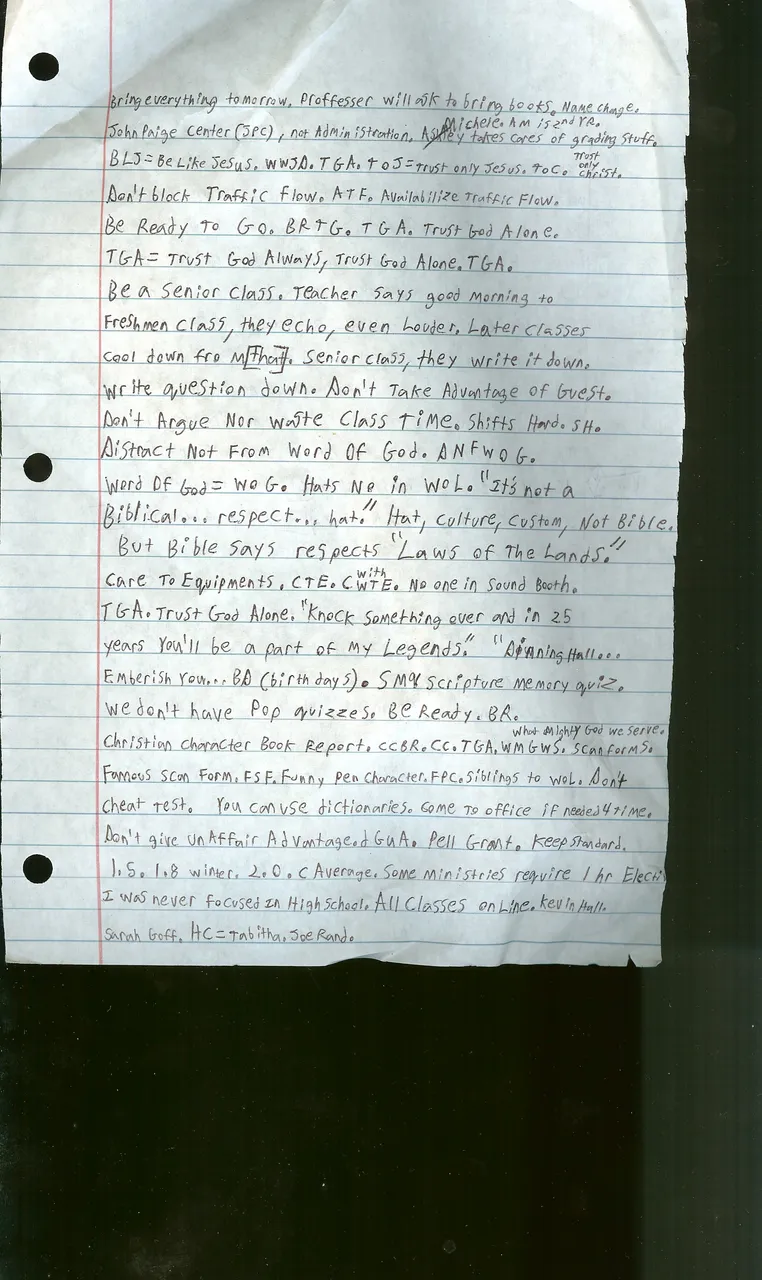 Bring everything tomorrow. Proffesser will ask to bring books. Name change.
Michele. AM is 2nd YR.
John Paige Center (JPC), not Administration. Ashley takes cares of grading stuff.
BLJ = Be Like Jesus. WWJD. TGA. TOJ = Trust only Jesus. TOC. Trust only Christ.
Don't block Traffic flow. ATF. Availabilize Traffic Flow.
Be Ready To Go. BRTG. TGA. Trust God Alone.
TGA = Trust God Always, Trust God Alone. TGA.
Be a Senior Class. Teacher says good morning to
Freshmen class, they echo, even Louder. Later classes
cool down fro M That. Senior class, they write it down.
Write question down. Don't Take Advantage of Guest.
Don't Argue Nor waste Class TIME. Shifts Hard. SH.
Distract Not From Word Of God. DNFWOG.
Word Of God = WOG. Hats No in WOL. "It's not a
Biblical... respect... hat." Hat, culture, custom, Not Bible.
But Bible says respects "Laws of The Lands."
Care To Equipments. CTE. CWTE. with No one in Sound Booth.
TGA. Trust God Alone. "Knock something over and in 25
years You'll be a part of my Legends." "Dinning Hall...
Emberish You... BD (birthdays). SMQ Scripture memory quiz.
We don't have Pop quizzes. Be Ready. BR.
What Mighty God we serve.
Christian Character Book Report. CCBR. CC. TGA. WMGWS. Scan forms.
Famous Scan Form. FSF. Funny Pen Character. FPC. Siblings to WOL. Don't
cheat test. You can use dictionaries. Come To office if needed 4 time.
Don't give UnAffair Advantage. dGUA. Pell Grant. Keep Standard.
1.5. 1.8 winter. 2.0. C Average. Some ministries require 1 hr Electi
I was never focused In High School. All Classes on Line. Kevin Hall.
Sarah Goff. HC = Tabitha. Joe Rand.